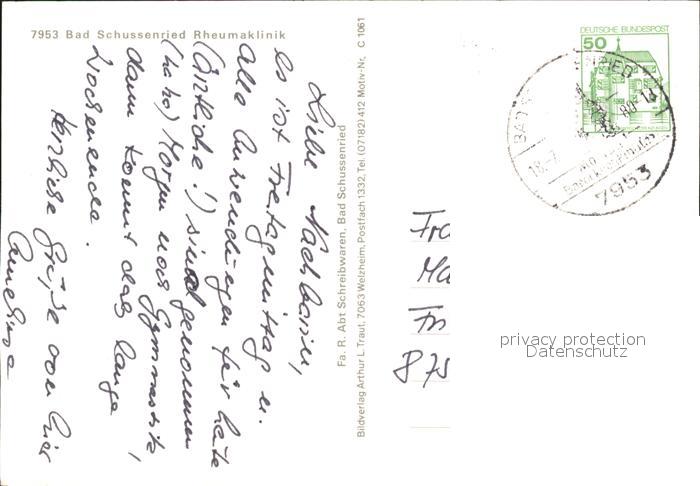 7953 Bad Schussenried Rheumaklinik
Liebe Nachbarin,
es ist Freitagmittag u.
alle Anwendungen für heute
(Örtliche!) sind genommen
(ha ha) Morgen noch Gymnastik,
dann kommt das lange
Wochenende.
Herzliche Grüße von Ihrer
Fa. R. Abt Schreibwaren, Bad Schussenried
Bildverlag Arthur L. Traut, 7063 Welzheim, Postfach 1332, Tel. (07182) 412 Motiv-Nr. C 1061
DEUTSCHE BUNDESPOST
50
BAD
RIED
18.-7.
80-14
7953
Fra
Ma
875
privacy protection
Datenschutz